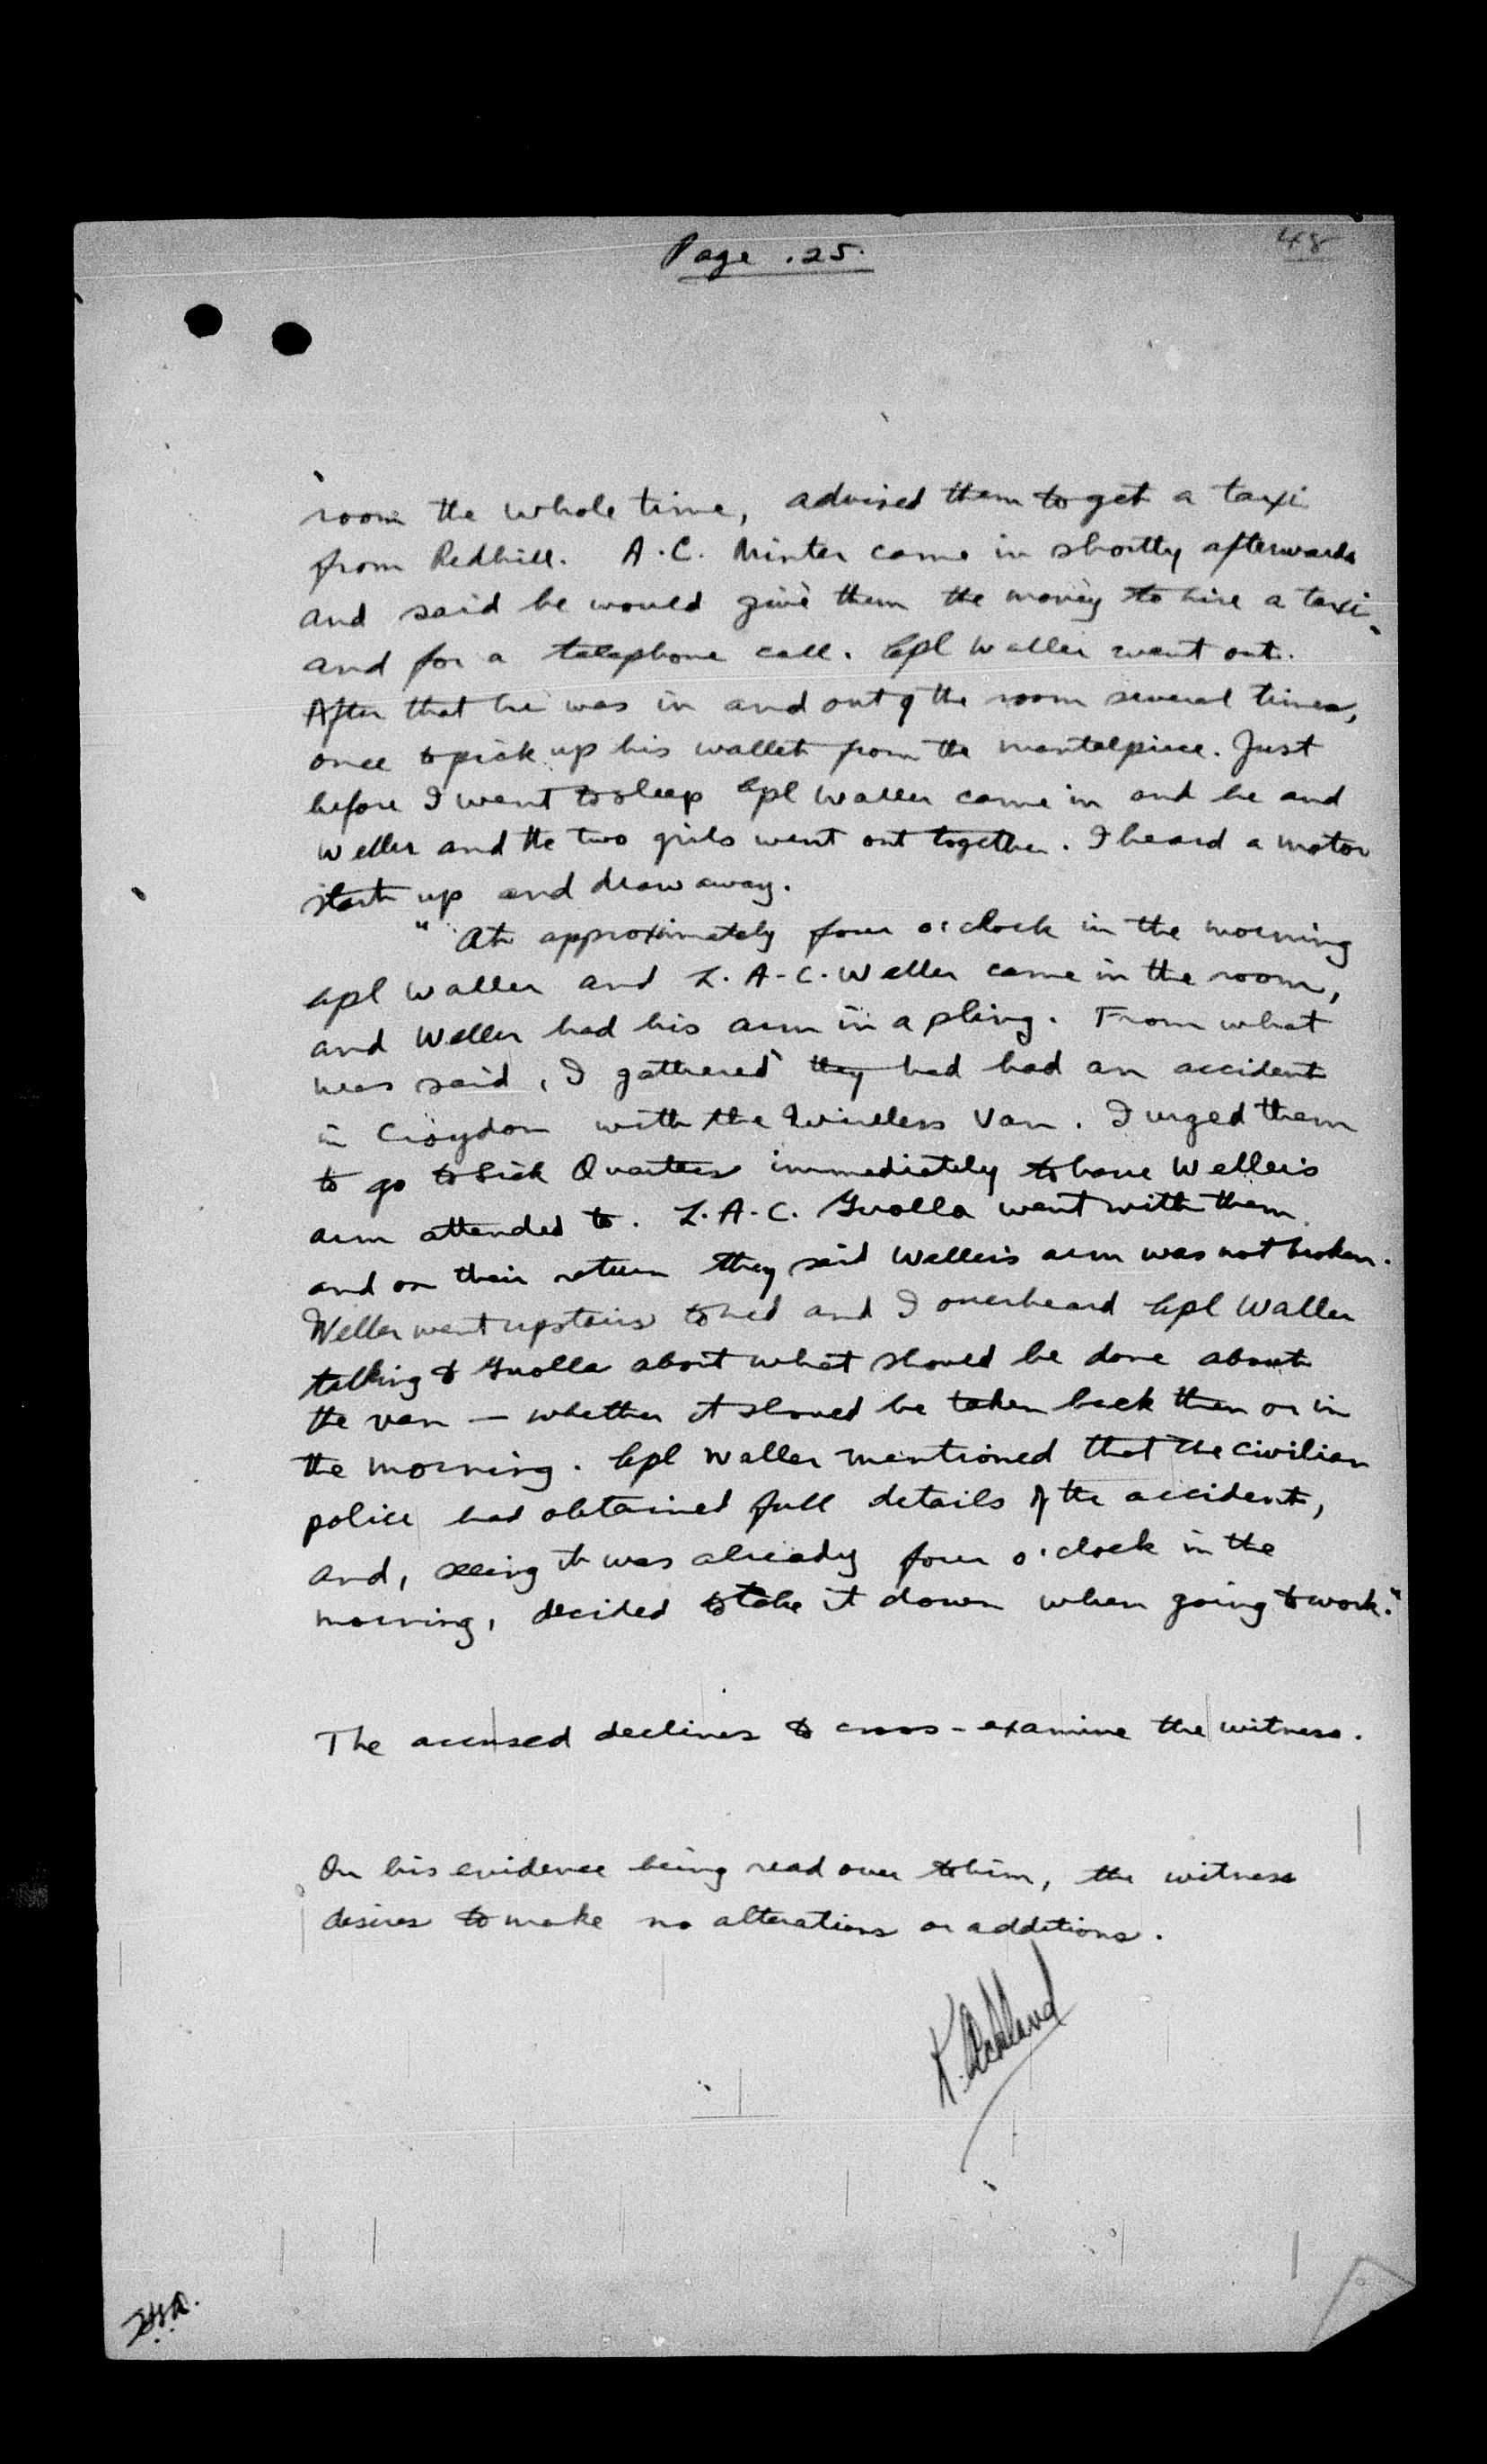 Page .25.
48
room the whole time, advised them to get a taxi
from Redhill. A.C. Minter came in shortly afterwards
and said he would give them the money to hire a taxi
and for a telephone call. Cpl Waller went out.
After that he was in and out of the room several times,
once to pick up his wallet from the mantelpiece. Just
before I went to sleep Cpl Waller came in and he and
Weller and the two girls went out together. I heard a motor
start up and draw away.
" At approximately four o'clock in the morning
Cpl Waller and L.A.C. Weller came in the room,
and Weller had his arm in a sling. From what
was said, I gathered they had had an accident
in Croydon with the Wireless Van. I urged them
to go to Sick Quarters immediately to have Weller's
arm attended to. L.A.C. Guolla went with them
and on their return they said Weller's arm was not broken.
Weller went upstairs to bed and I overheard Cpl Waller
talking to Guolla about what should be done about
the van — whether it should be taken back then or in
the morning. Cpl Waller mentioned that the civilian
police had obtained full details of the accident,
and, seeing it was already four o'clock in the
morning, decided to take it down when going to work."
The accused declines to cross-examine the witness.
On his evidence being read over to him, the witness
desires to make no alterations or additions.
K. Ackland